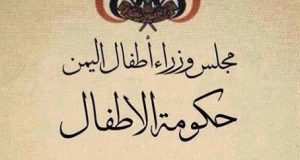 مجلس وزراء أطفال اليمن
حكومة الاطفال